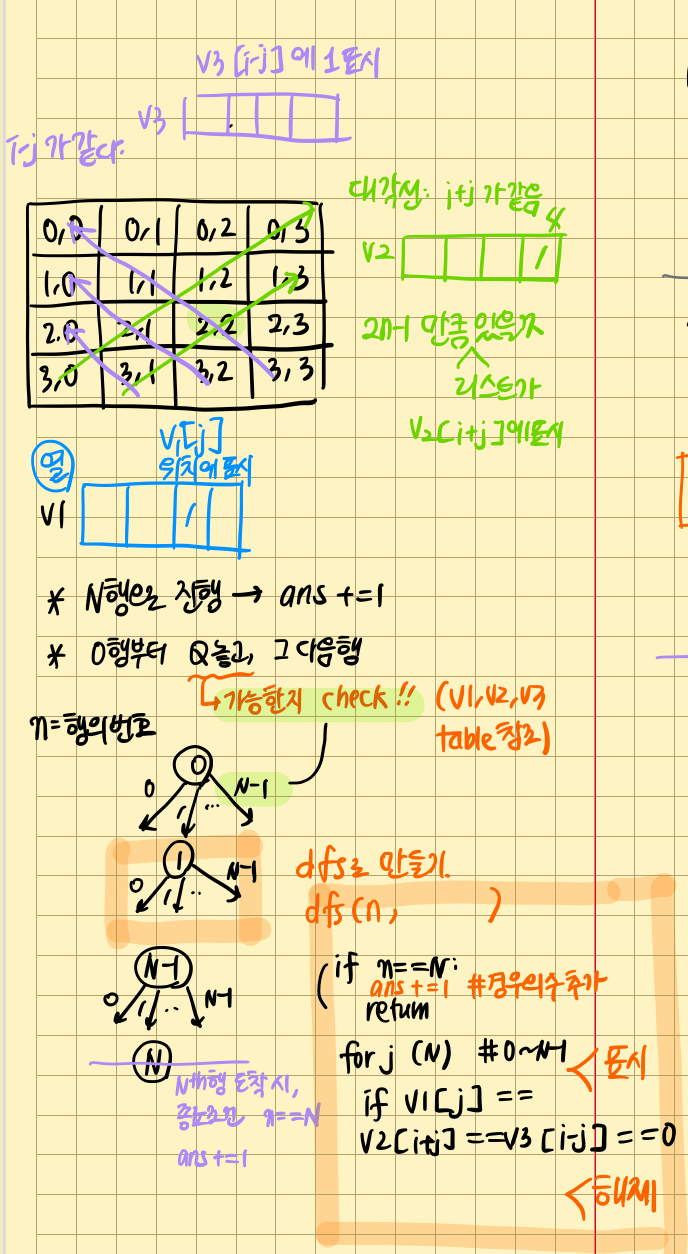 V3 [i-j]에 1표시
V3
i-j가 같다.
대각선: i+j가 같음
4
V2
1
0,0 0,1 0,2 0,3
1,0 1,1 1,2 1,3
2,0 2,1 2,2 2,3
3,0 3,1 3,2 3,3
2n-1 만큼 있을것
리스트가
V2[i+j]에 표시
열
V1[j]
위치에 표시
V1
1
* N행으로 진행 → ans +=1
* 0행부터 Q놓고, 그 다음행
↳가능한지 check!! (V1,V2,V3
table참조)
n=행의번호
0
0 1 ... N-1
1
0 1 .. N-1
dfs로 만들기.
dfs(n, )
N-1
0 1 .. N-1
N
N번행 도착 시,
종료조건 n==N
ans+=1
if n==N:
ans+=1 #경우의수추가
return
for j (N) #0~N-1
< 표시
if V1[j] ==
V2[i+j]==V3[i-j]==0
< 해제